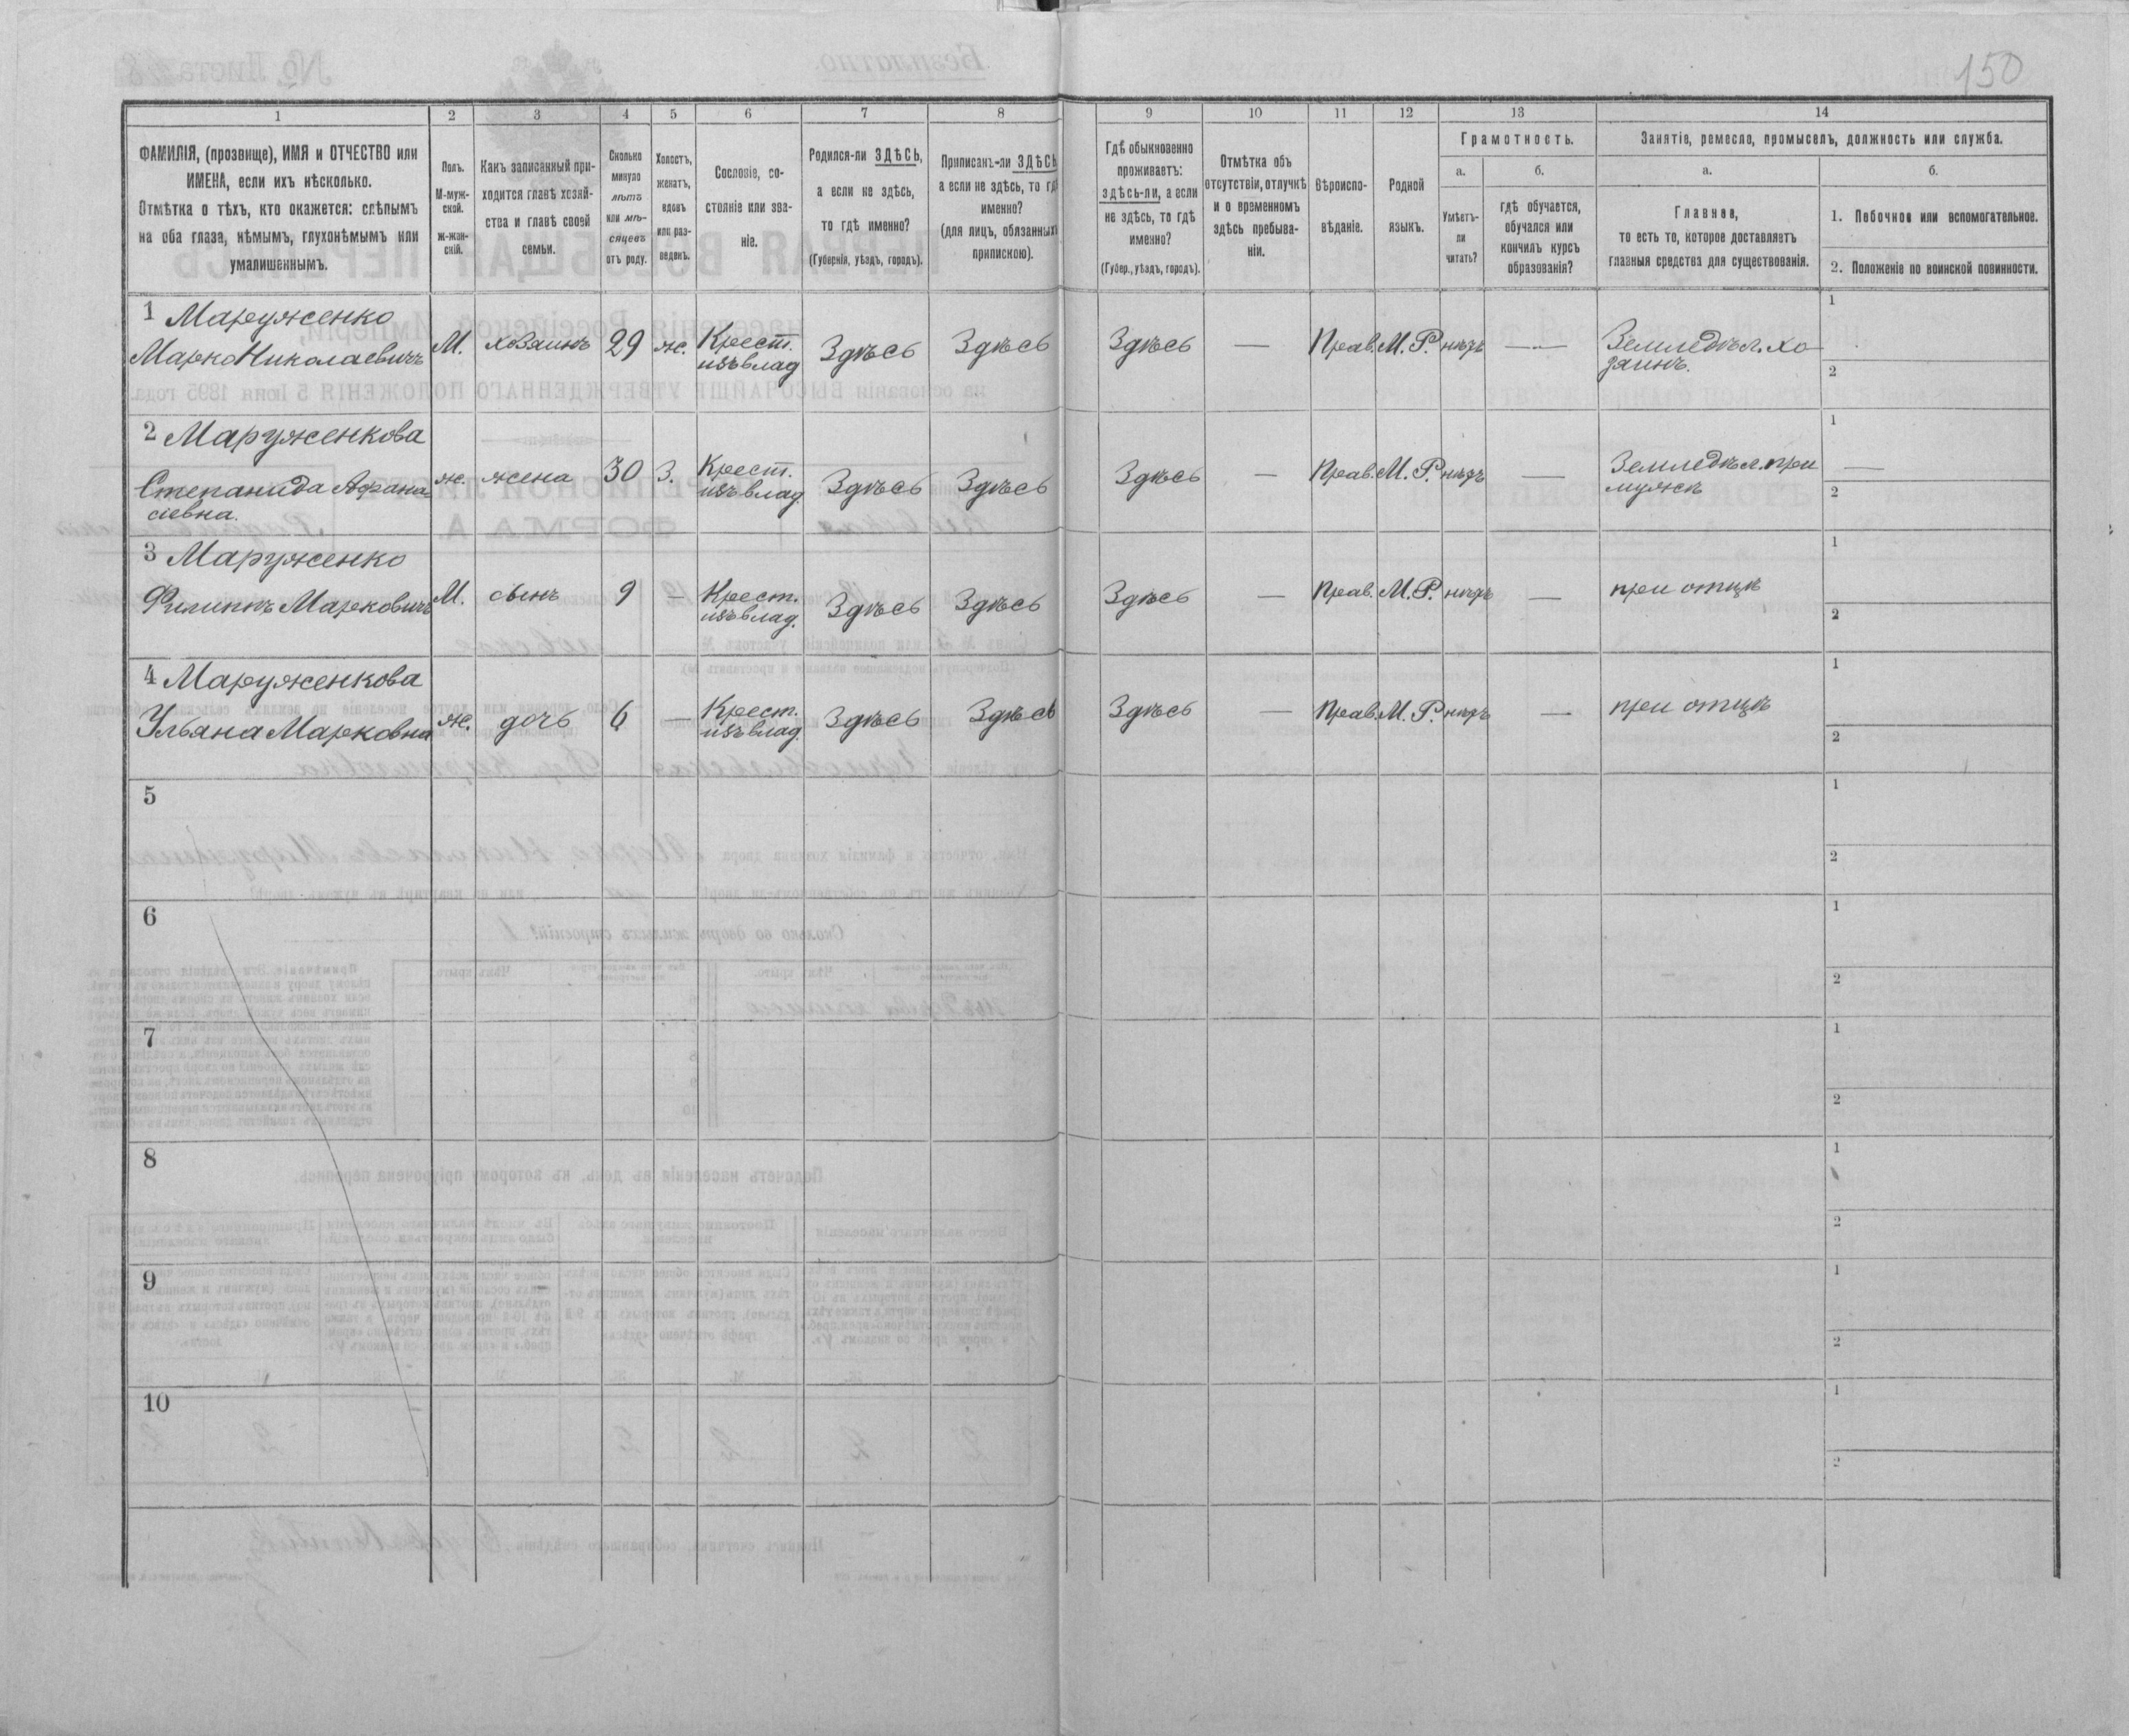 150
1 2 3 4 5 6 7 8 9 10 11 12 13 14
ФАМИЛІЯ, (прозвище), ИМЯ и ОТЧЕСТВО или
ИМЕНА, если ихъ нѣсколько.
Отмѣтка о тѣхъ, кто окажется: слѣпымъ
на оба глаза, нѣмымъ, глухонѣмымъ или
умалишеннымъ.
Полъ.
М-муж-
ской.
ж-жен-
скій.
Какъ записанный при-
ходится главѣ хозяй-
ства и главѣ своей
семьи.
Сколько
минуло
лѣтъ
или мѣ-
сяцевъ
отъ роду.
Холостъ,
женатъ,
вдовъ
или раз-
веденъ.
Сословіе, со-
стояніе или зва-
ніе.
Родился-ли ЗДѢСЬ,
а если не здѣсь,
то гдѣ именно?
(Губернія, уѣздъ, городъ).
Приписанъ-ли ЗДѢСЬ
а если не здѣсь, то гдѣ
именно?
(для лицъ, обязанныхъ
припискою).
Гдѣ обыкновенно
проживаетъ:
здѣсь-ли, а если
не здѣсь, то гдѣ
именно?
(Губер., уѣздъ, городъ).
Отмѣтка объ
отсутствіи, отлучкѣ
и о временномъ
здѣсь пребыва-
ніи.
Вѣроиспо-
вѣданіе.
Родной
языкъ.
Грамотность.
а.
Умѣетъ-
ли
читать?
б.
гдѣ обучается,
обучался или
кончилъ курсъ
образованія?
Занятіе, ремесло, промыселъ, должность или служба.
а.
Главное,
то есть то, которое доставляетъ
главныя средства для существованія.
б.
1. Побочное или вспомогательное.
2. Положеніе по воинской повинности.
1 Маруженко
Марко Николаевичъ М. хозяинъ 29 ж. Крест.
изъ влад Здѣсь Здѣсь Здѣсь — Прав. М. Р. нѣтъ — Земледѣл. хо-
зяинъ.
1
2
2 Маруженкова
Степанида Афана-
сіевна. ж. жена 30 З. Крест.
изъ влад. Здѣсь Здѣсь Здѣсь — Прав. М. Р. нѣтъ — Земледѣл. при
мужѣ
1 —
2
3 Маруженко
Филиппъ Марковичъ М. сынъ 9 — Крест.
изъ влад. Здѣсь Здѣсь Здѣсь — Прав. М. Р. нѣтъ — при отцѣ
1
2
4 Маруженкова
Ульяна Марковна ж. дочь 6 — Крест.
изъ влад. Здѣсь Здѣсь Здѣсь — Прав. М. Р. нѣтъ — при отцѣ
1
2
5
1
2
6
1
2
7
1
2
8
1
2
9
1
2
10
1
2